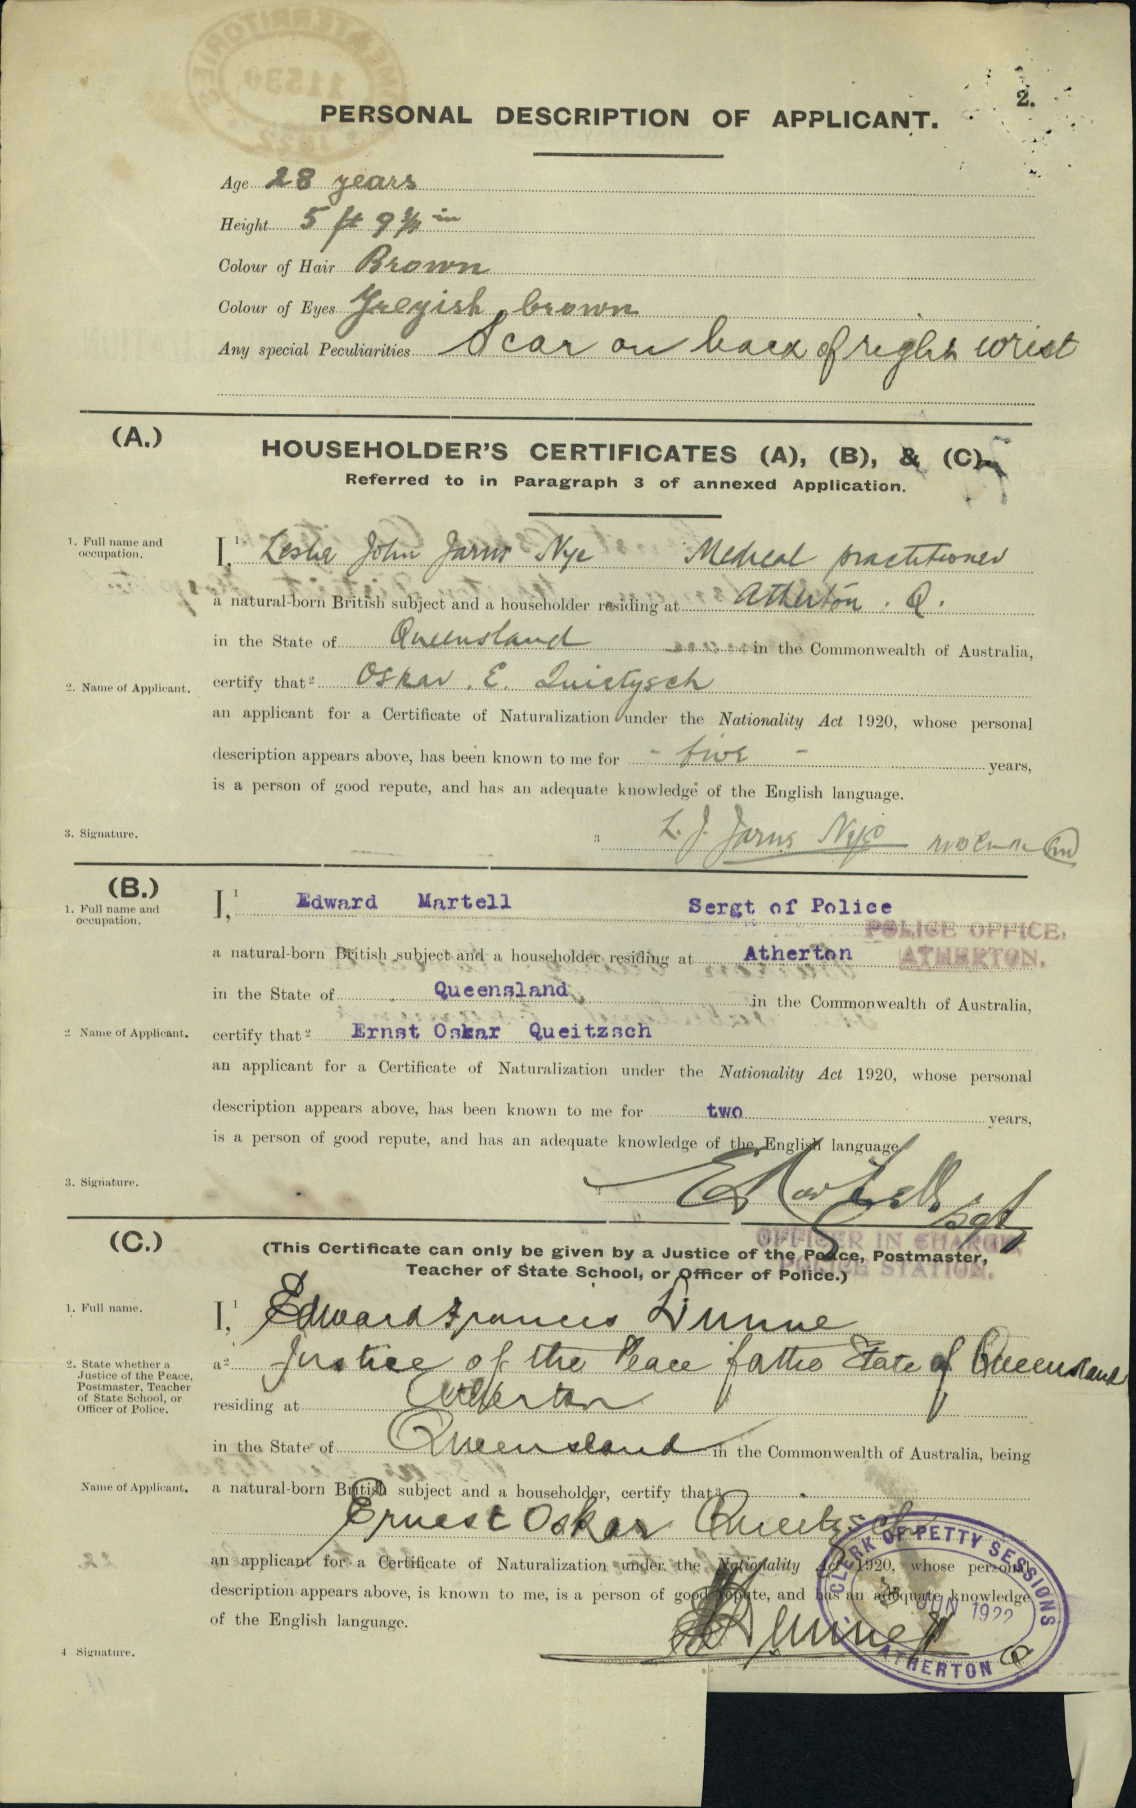 2.
PERSONAL DESCRIPTION OF APPLICANT.
Age 28 years
Height 5 ft 9 ½ in
Colour of Hair Brown
Colour of Eyes Greyish brown
Any special Peculiarities Scar on back of right wrist
(A.)
HOUSEHOLDER'S CERTIFICATES (A), (B), & (C)
Referred to in Paragraph 3 of annexed Application.
1. Full name and occupation.
I, 1 Leslie John Jarvis Nye Medical practitioner
a natural-born British subject and a householder residing at Atherton . Q.
in the State of Queensland in the Commonwealth of Australia,
2. Name of Applicant.
certify that 2 Oskar . E. Quietzsch
an applicant for a Certificate of Naturalization under the Nationality Act 1920, whose personal
description appears above, has been known to me for - five - years,
is a person of good repute, and has an adequate knowledge of the English language.
3. Signature.
3 L. J. Jarvis Nye
(B.)
1. Full name and occupation.
I, 1 Edward Martell Sergt of Police
POLICE OFFICE,
ATHERTON.
a natural-born British subject and a householder residing at Atherton
in the State of Queensland in the Commonwealth of Australia,
2 Name of Applicant.
certify that 2 Ernst Oskar Queitzsch
an applicant for a Certificate of Naturalization under the Nationality Act 1920, whose personal
description appears above, has been known to me for two years,
is a person of good repute, and has an adequate knowledge of the English language
3. Signature.
E Martell Sgt
OFFICER IN CHARGE,
POLICE STATION.
(C.)
(This Certificate can only be given by a Justice of the Peace, Postmaster,
Teacher of State School, or Officer of Police.)
1. Full name.
I, 1 Edward Francis Lunne
2. State whether a Justice of the Peace, Postmaster, Teacher of State School, or Officer of Police.
a 2 Justice of the Peace for the State of Queensland
residing at Atherton
in the State of Queensland in the Commonwealth of Australia, being
Name of Applicant.
a natural-born British subject and a householder, certify that 3
Ernest Oskar Queitzsch
an applicant for a Certificate of Naturalization under the Nationality Act 1920, whose personal
description appears above, is known to me, is a person of good repute, and has an adequate knowledge
of the English language.
4 Signature.
CLERK OF PETTY SESSIONS
JUN 1922
ATHERTON Q